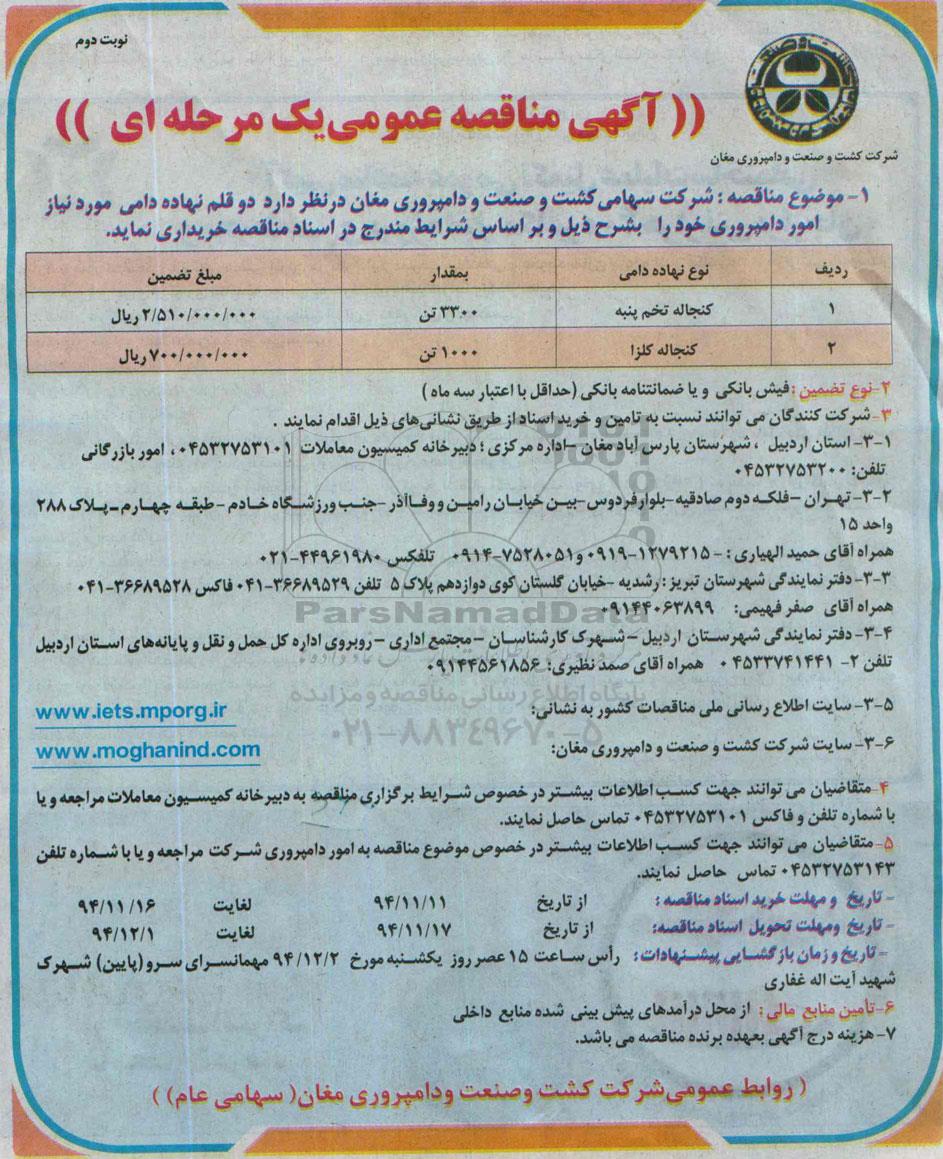 نوبت دوم
(( آگهی مناقصه عمومی یک مرحله ای ))
شرکت کشت و صنعت و دامپروری مغان
۱- موضوع مناقصه : شرکت سهامی کشت و صنعت و دامپروری مغان درنظر دارد دو قلم نهاده دامی مورد نیاز
امور دامپروری خود را بشرح ذیل و بر اساس شرایط مندرج در اسناد مناقصه خریداری نماید.
ردیف نوع نهاده دامی بمقدار مبلغ تضمین
۱ کنجاله تخم پنبه ۳۳۰۰ تن ۲/۵۱۰/۰۰۰/۰۰۰ ریال
۲ کنجاله کلزا ۱۰۰۰ تن ۷۰۰/۰۰۰/۰۰۰ ریال
۲-نوع تضمین : فیش بانکی و یا ضمانتنامه بانکی (حداقل با اعتبار سه ماه )
۳-شرکت کنندگان می توانند نسبت به تامین و خرید اسناد از طریق نشانی‌های ذیل اقدام نمایند .
۳-۱- استان اردبیل ، شهرستان پارس آباد مغان -اداره مرکزی ؛ دبیرخانه کمیسیون معاملات ۰۴۵۳۲۷۵۳۱۰۱، امور بازرگانی
تلفن: ۰۴۵۳۲۷۵۳۲۰۰
۳-۲- تهران -فلکه دوم صادقیه-بلوارفردوس-بین خیابان رامین و وفاآذر -جنب ورزشگاه خادم -طبقه چهارم -پلاک ۲۸۸
واحد ۱۵
همراه آقای حمید الهیاری : - ۰۹۱۹-۱۲۷۹۲۱۵ و ۰۹۱۴-۷۵۲۸۰۵۱ تلفکس ۰۲۱-۴۴۹۶۱۹۸۰
۳-۳- دفتر نمایندگی شهرستان تبریز : رشدیه -خیابان گلستان کوی دوازدهم پلاک ۵ تلفن ۰۴۱-۳۶۶۸۹۵۲۹ فاکس ۰۴۱-۳۶۶۸۹۵۲۸
همراه آقای صفر فهیمی: ۰۹۱۴۴۰۶۳۸۹۹
ParsNamadData
۳-۴- دفتر نمایندگی شهرستان اردبیل -شهرک کارشناسان -مجتمع اداری -روبروی اداره کل حمل و نقل و پایانه‌های استان اردبیل
تلفن ۲- ۰۴۵۳۳۷۴۱۴۴۱ همراه آقای صمد نظیری: ۰۹۱۴۴۵۶۱۸۵۶
پایگاه اطلاع رسانی مناقصه و مزایده
۳-۵- سایت اطلاع رسانی ملی مناقصات کشور به نشانی: www.iets.mporg.ir
۰۲۱-۸۸۳۴۹۶۷۰-۵
۳-۶- سایت شرکت کشت و صنعت و دامپروری مغان: www.moghanind.com
۴-متقاضیان می توانند جهت کسب اطلاعات بیشتر در خصوص شرایط برگزاری مناقصه به دبیرخانه کمیسیون معاملات مراجعه و یا
با شماره تلفن و فاکس ۰۴۵۳۲۷۵۳۱۰۱ تماس حاصل نمایند.
۵-متقاضیان می توانند جهت کسب اطلاعات بیشتر در خصوص موضوع مناقصه به امور دامپروری شرکت مراجعه و یا با شماره تلفن
۰۴۵۳۲۷۵۳۱۴۳ تماس حاصل نمایند.
- تاریخ و مهلت خرید اسناد مناقصه : از تاریخ ۹۴/۱۱/۱۱ لغایت ۹۴/۱۱/۱۶
- تاریخ ومهلت تحویل اسناد مناقصه: از تاریخ ۹۴/۱۱/۱۷ لغایت ۹۴/۱۲/۱
- تاریخ و زمان بازگشایی پیشنهادات : رأس ساعت ۱۵ عصر روز یکشنبه مورخ ۹۴/۱۲/۲ مهمانسرای سرو (پایین) شهرک
شهید آیت اله غفاری
۶-تأمین منابع مالی : از محل درآمدهای پیش بینی شده منابع داخلی
۷- هزینه درج آگهی بعهده برنده مناقصه می باشد.
( روابط عمومی شرکت کشت وصنعت ودامپروری مغان( سهامی عام) )